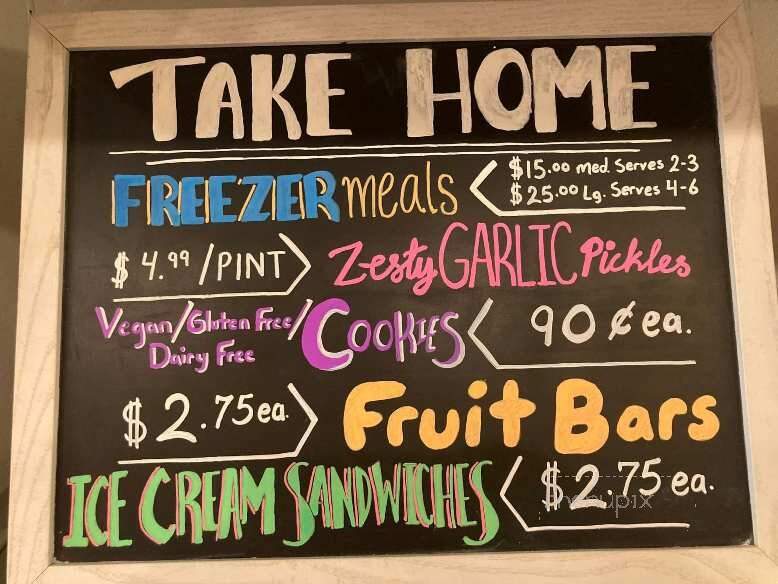 TAKE HOME
FREEZER meals
$15.00 med. Serves 2-3
$25.00 Lg. Serves 4-6
$4.99/PINT Zesty GARLIC Pickles
Vegan/Gluten Free/
Dairy Free
COOKIES 90¢ea.
$2.75ea. Fruit Bars
ICE CREAM SANDWICHES $2.75 ea.
menupix